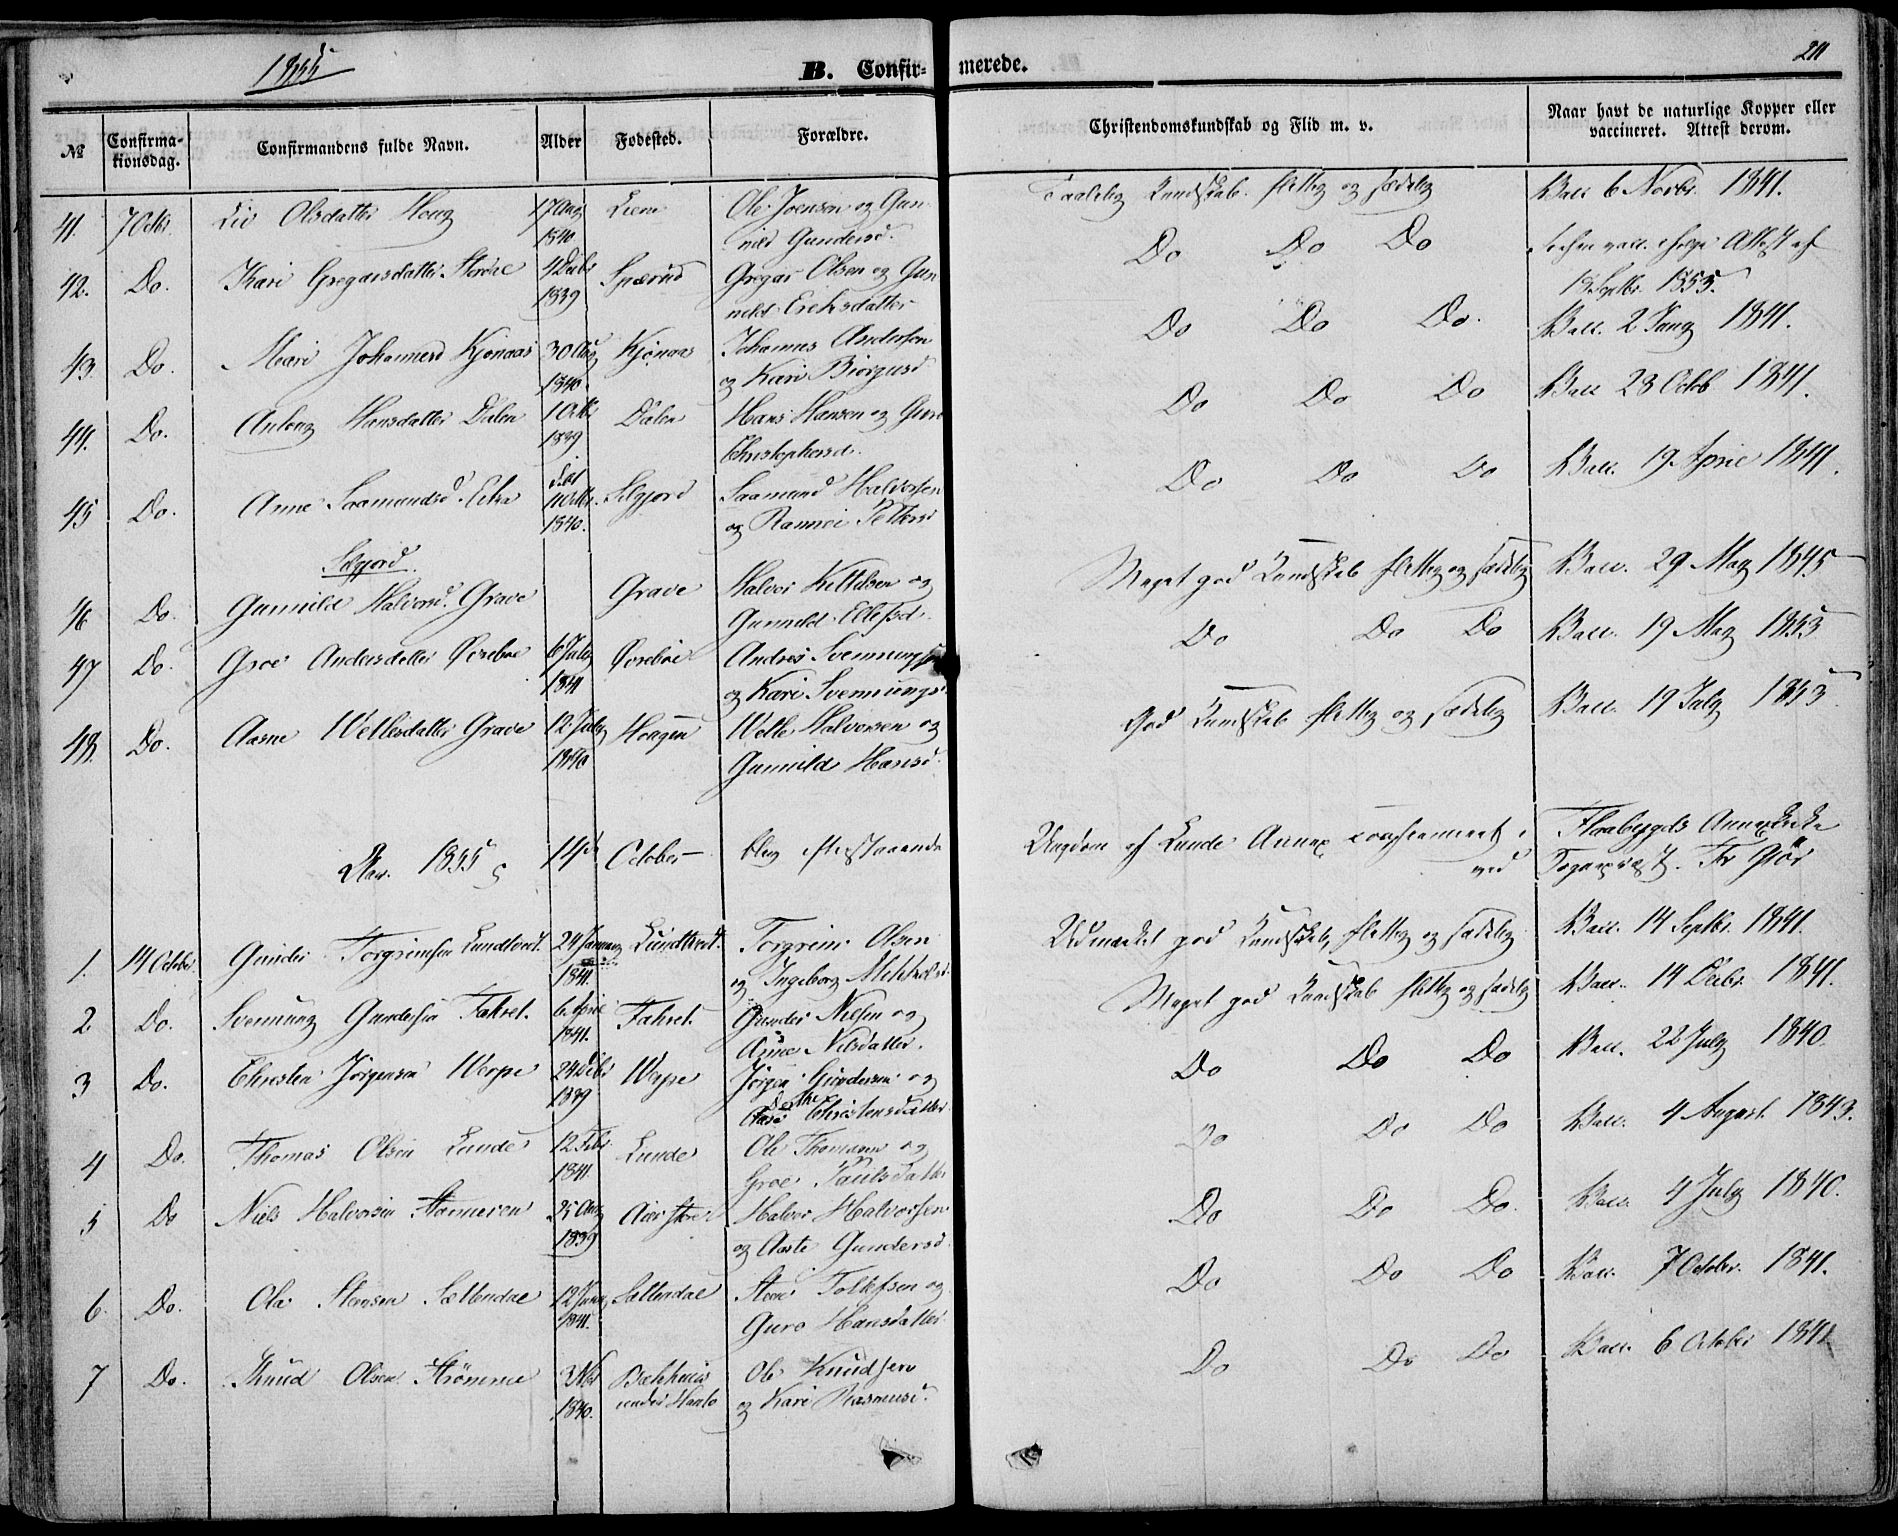 1855
B. Confir- merede.
211
№
Confirma-
tionsdag.
Confirmandens fulde Navn.
Alder
Fødested.
Forældre.
Christendomskundskab og Flid m. v.
Naar havt de naturlige Kopper eller
vaccineret. Attest derom.
41. 7 Octbr. Liv Olsdatter Houg 17 Aug 1840 Liene Ole Joensen og Gunnild Gundersd. Taalelig Kundskab. flittig og sædelig Vacc 6 Novbr. 1841.
42. Do. Kari Gregarsdatter 4 Decbr 1839 Gregar Olsen og Gunnild Eriksdatter Do Do Do Attest af 18 Septbr. 1855.
43. Do. Mari Johannesd Kjønaas 30 Aug 1840. Kjønaas Johannes Andersen og Kari Biørgusd Do Do Do. Vacc. 2 1841.
44. Do. Hansdatter Dalen 1 Octbr 1839 Dalen Hans Hansen og Guro Christophersd. Do Do Do Vacc 23 Octob 1841.
45 Do. Anne Saamundsd. 1840. Selgjord Saamund Halvorsen og Rannei Petersd Do Do Do Vacc. 19 April 1841.
Selgjord.
46 Do. Gunnild Halvorsd. Grave Grave Halvor Kittilsen og Gunnild Ellefsd. Meget god Kundskab flittig og sædelig Vacc. 29 May 1845
47 Do. Groe Andersdatter Ørebøe 6 July 1841 Ørebøe Andres Svennungs og Kari Svennungs. Do Do Do Vacc. 19 May 1853
48. Do. Aasne Wetlesdatter Grave 12 July 1840 Haagen Wetle Halvorsen og Gunnild Hansd. God Kundskab flittig og sædelig Vacc. 19 July 1853.
Aar. 1855 14de October blev efterstaaende Ungdom af Lunde Annex confirmeret i Flaabygds Annexkirke
ved Sognepræst. Fr Gjør
1. 14 October Gunder Torgrimsen Lundtvedt. 24 January 1841. Lundtvedt. Torgrim Olsen og Ingeborg Udmærket god Kundskab, flittig og sædelig Vacc. 14 Septbr. 1841.
2. Do. Svennung Gundersen Fahret. 6 April 1841. Fahret. Gunder Nielsen og Anne Nilsdatter. Meget god Kundskab flittig og sædelig Vacc. 14 Decbr. 1841.
3 Do. Christen Jørgensen Verpe 24 1839 Verpe Jørgen Gundersen og Dorthe Christensdatter Do Do Do Vacc. 22 July 1840.
4 Do. Thomas Olsen Lunde 12 Febr. 1841. Lunde Ole Thomasen og Groe Paulsdatter Do Do Do Vacc. 4 August 1843.
5 Do Niels Halvorsen 25 Aug 1839 Halvor Halvorsen og Aaste Gundersd. Do Do Do. Vacc. 4 July 1840.
6. Do. Ola Steensen Sattendal 12 1841. Sattendal Steen Tollefsen og Guro Hansdatter Do Do Do Vacc. 7 Octobr. 1841.
7 Do. Knud Olsen Strømme 1840. Bækhuus under Ole Knudsen og Kari Rasmusd. Do Do Do Vacc. 6 October 1841